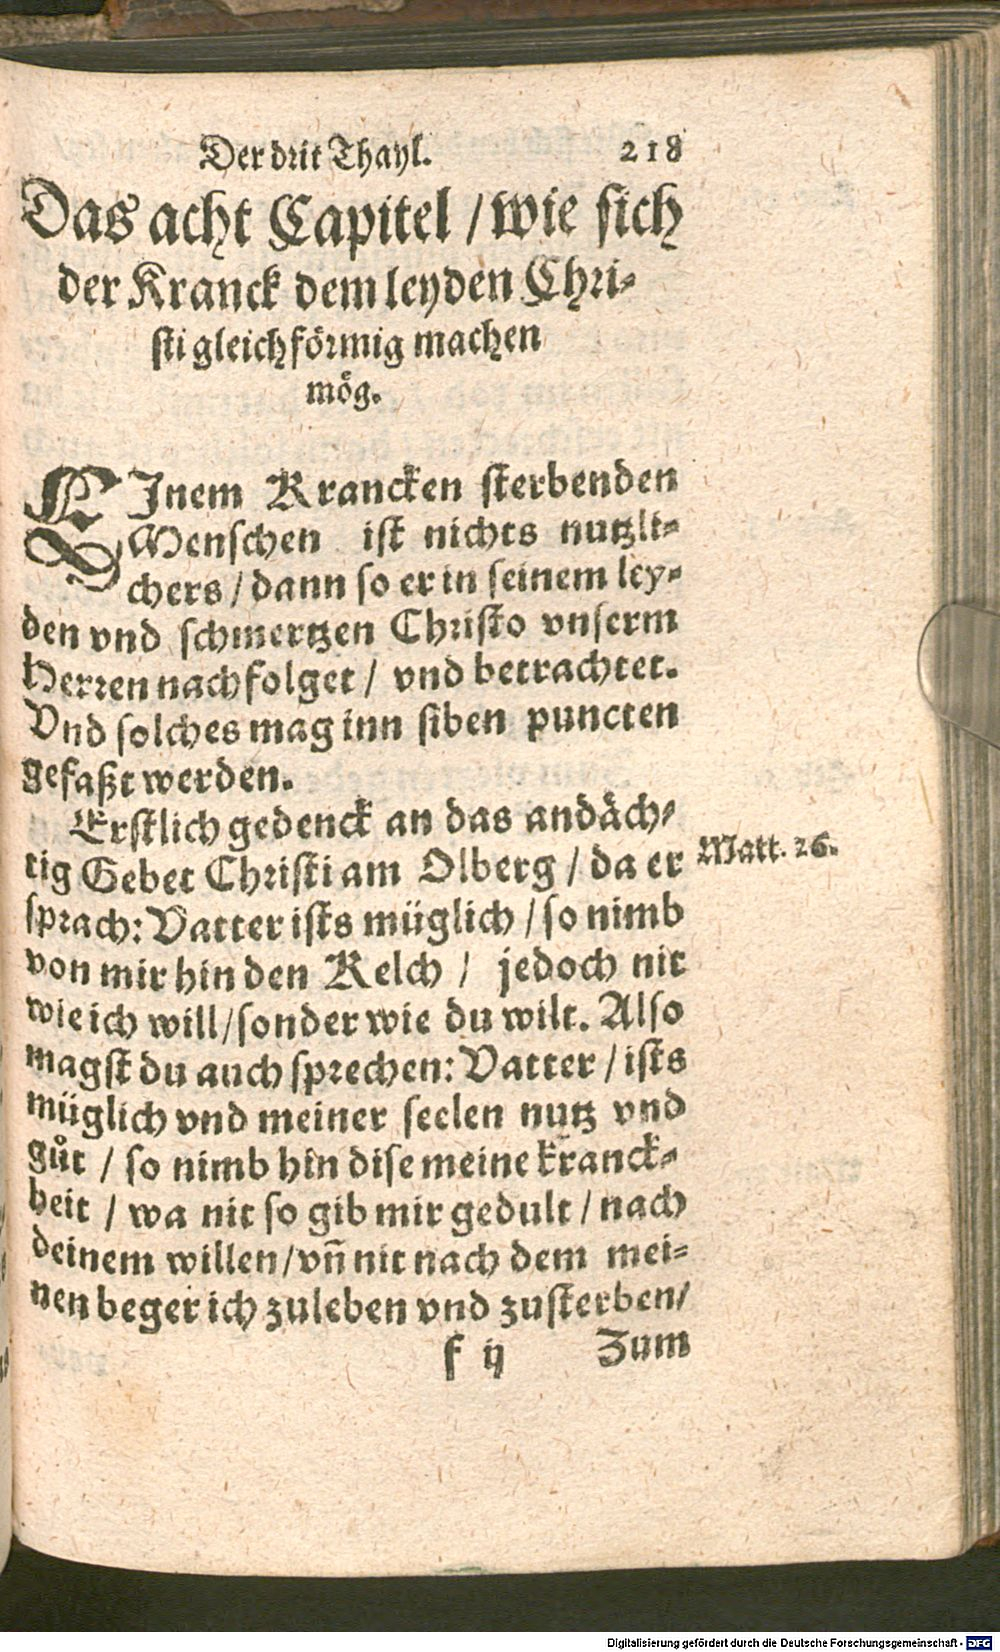 Der drit Thayl. 218
Das acht Capitel / wie sich
der Kranck dem leyden Chri-
sti gleichförmig machen
mög.
EJnem Krancken sterbenden
Menschen ist nichts nutzli-
chers / dann so er in seinem ley-
den vnd schmertzen Christo vnserm
Herren nachfolget / vnd betrachtet.
Vnd solches mag inn siben puncten
gefaßt werden.
Erstlich gedenck an das andäch-
tig Gebet Christi am Olberg / da er
Matt. 26.
sprach: Vatter ists müglich / so nimb
von mir hin den Kelch / jedoch nit
wie ich will / sonder wie du wilt. Also
magst du auch sprechen: Vatter / ists
müglich vnd meiner seelen nutz vnd
gůt / so nimb hin dise meine kranck-
heit / wa nit so gib mir gedult / nach
deinem willen / vñ nit nach dem mei-
nen beger ich zuleben vnd zusterben /
f ij Zum
Digitalisierung gefördert durch die Deutsche Forschungsgemeinschaft - DFG